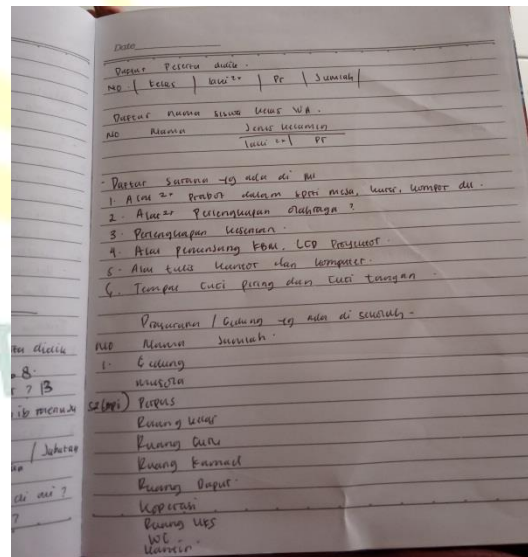 Date
Daftar Peserta didik.
NO | Kelas | laki2+ | Pr | Jumlah |
Daftar nama siswa kelas
NO Nama Jenis kelamin
laki 2+ | Pr
- Daftar sarana yg ada di
1. Alat 2+ Prabot dalam sperti meja, kursi, lompor dll.
2. Alat 2+ Perlengkapan olahraga ?
3. Perlengkapan kesenian.
4. Alat Penunjang KBM, LCD Proyektor.
5. Alat tulis kantor dan komputer.
6. Tempat cuci piring dan cuci tangan.
Prasarana / Gedung yg ada di sekolah.
NO Nama Jumlah.
1. Gedung
Musola
Perpus
Ruang kelas
Ruang Guru
Ruang Kamad
Ruang Dapur.
Koperasi
Ruang UKS
WC.
Kantin
didik
8.
? 13
/ Jabatan
di mi ?
?